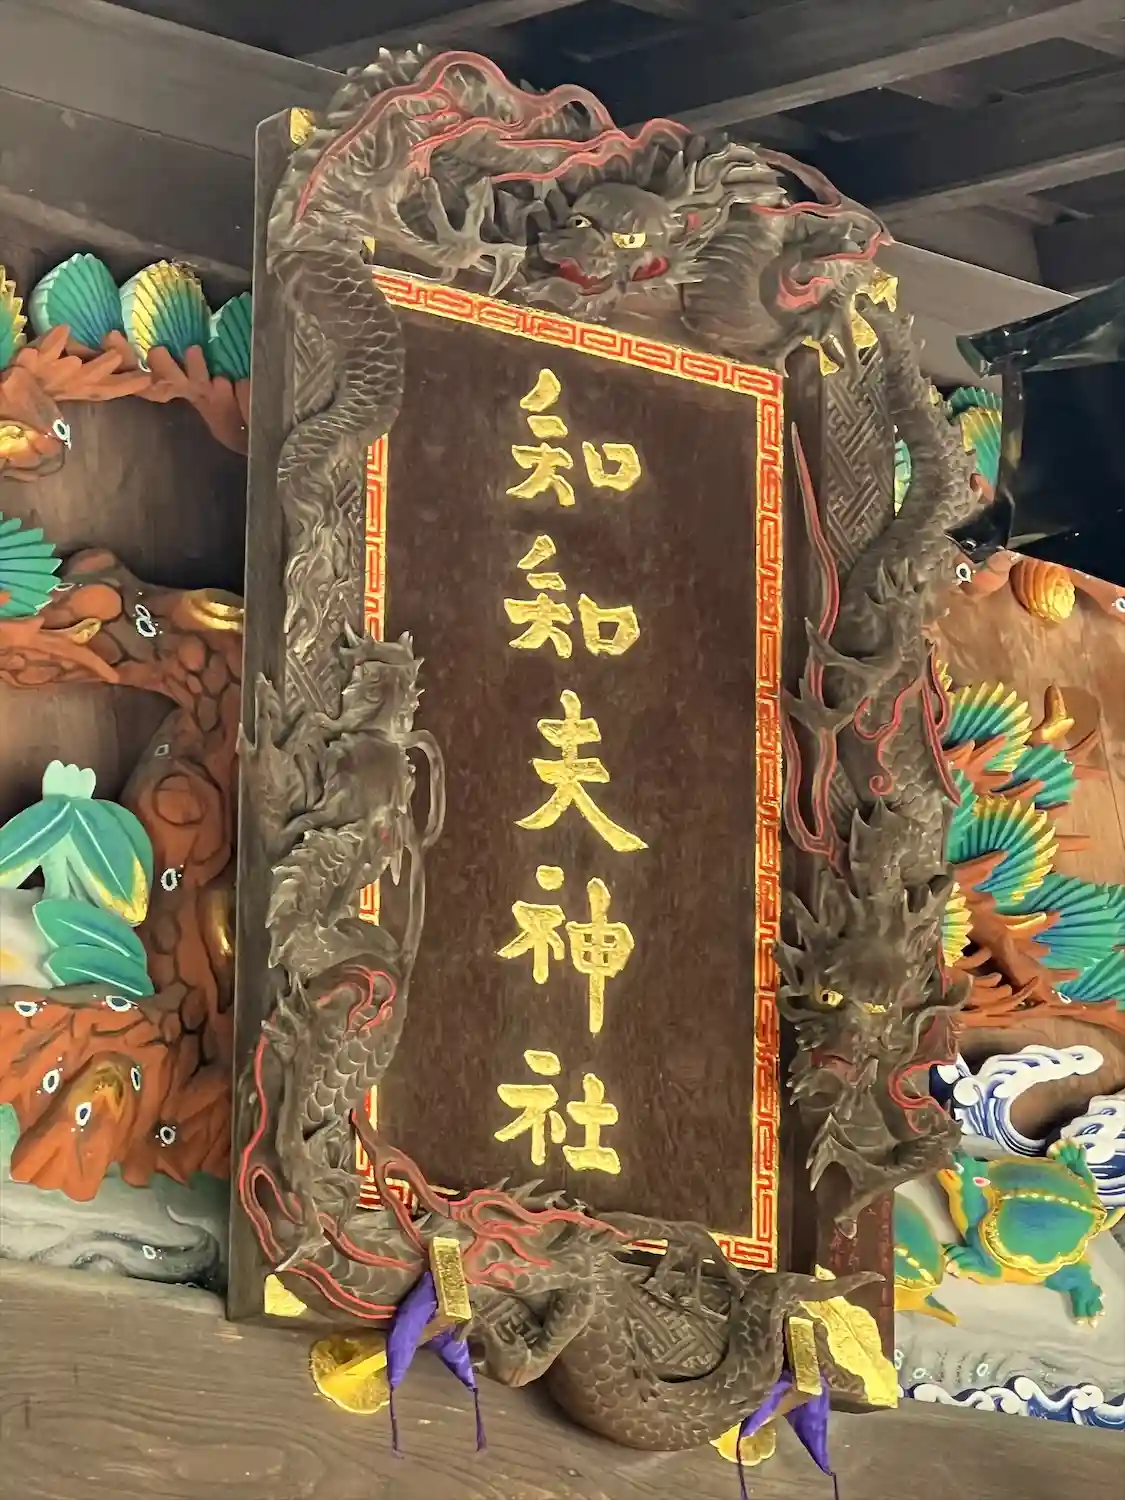 知知夫神社